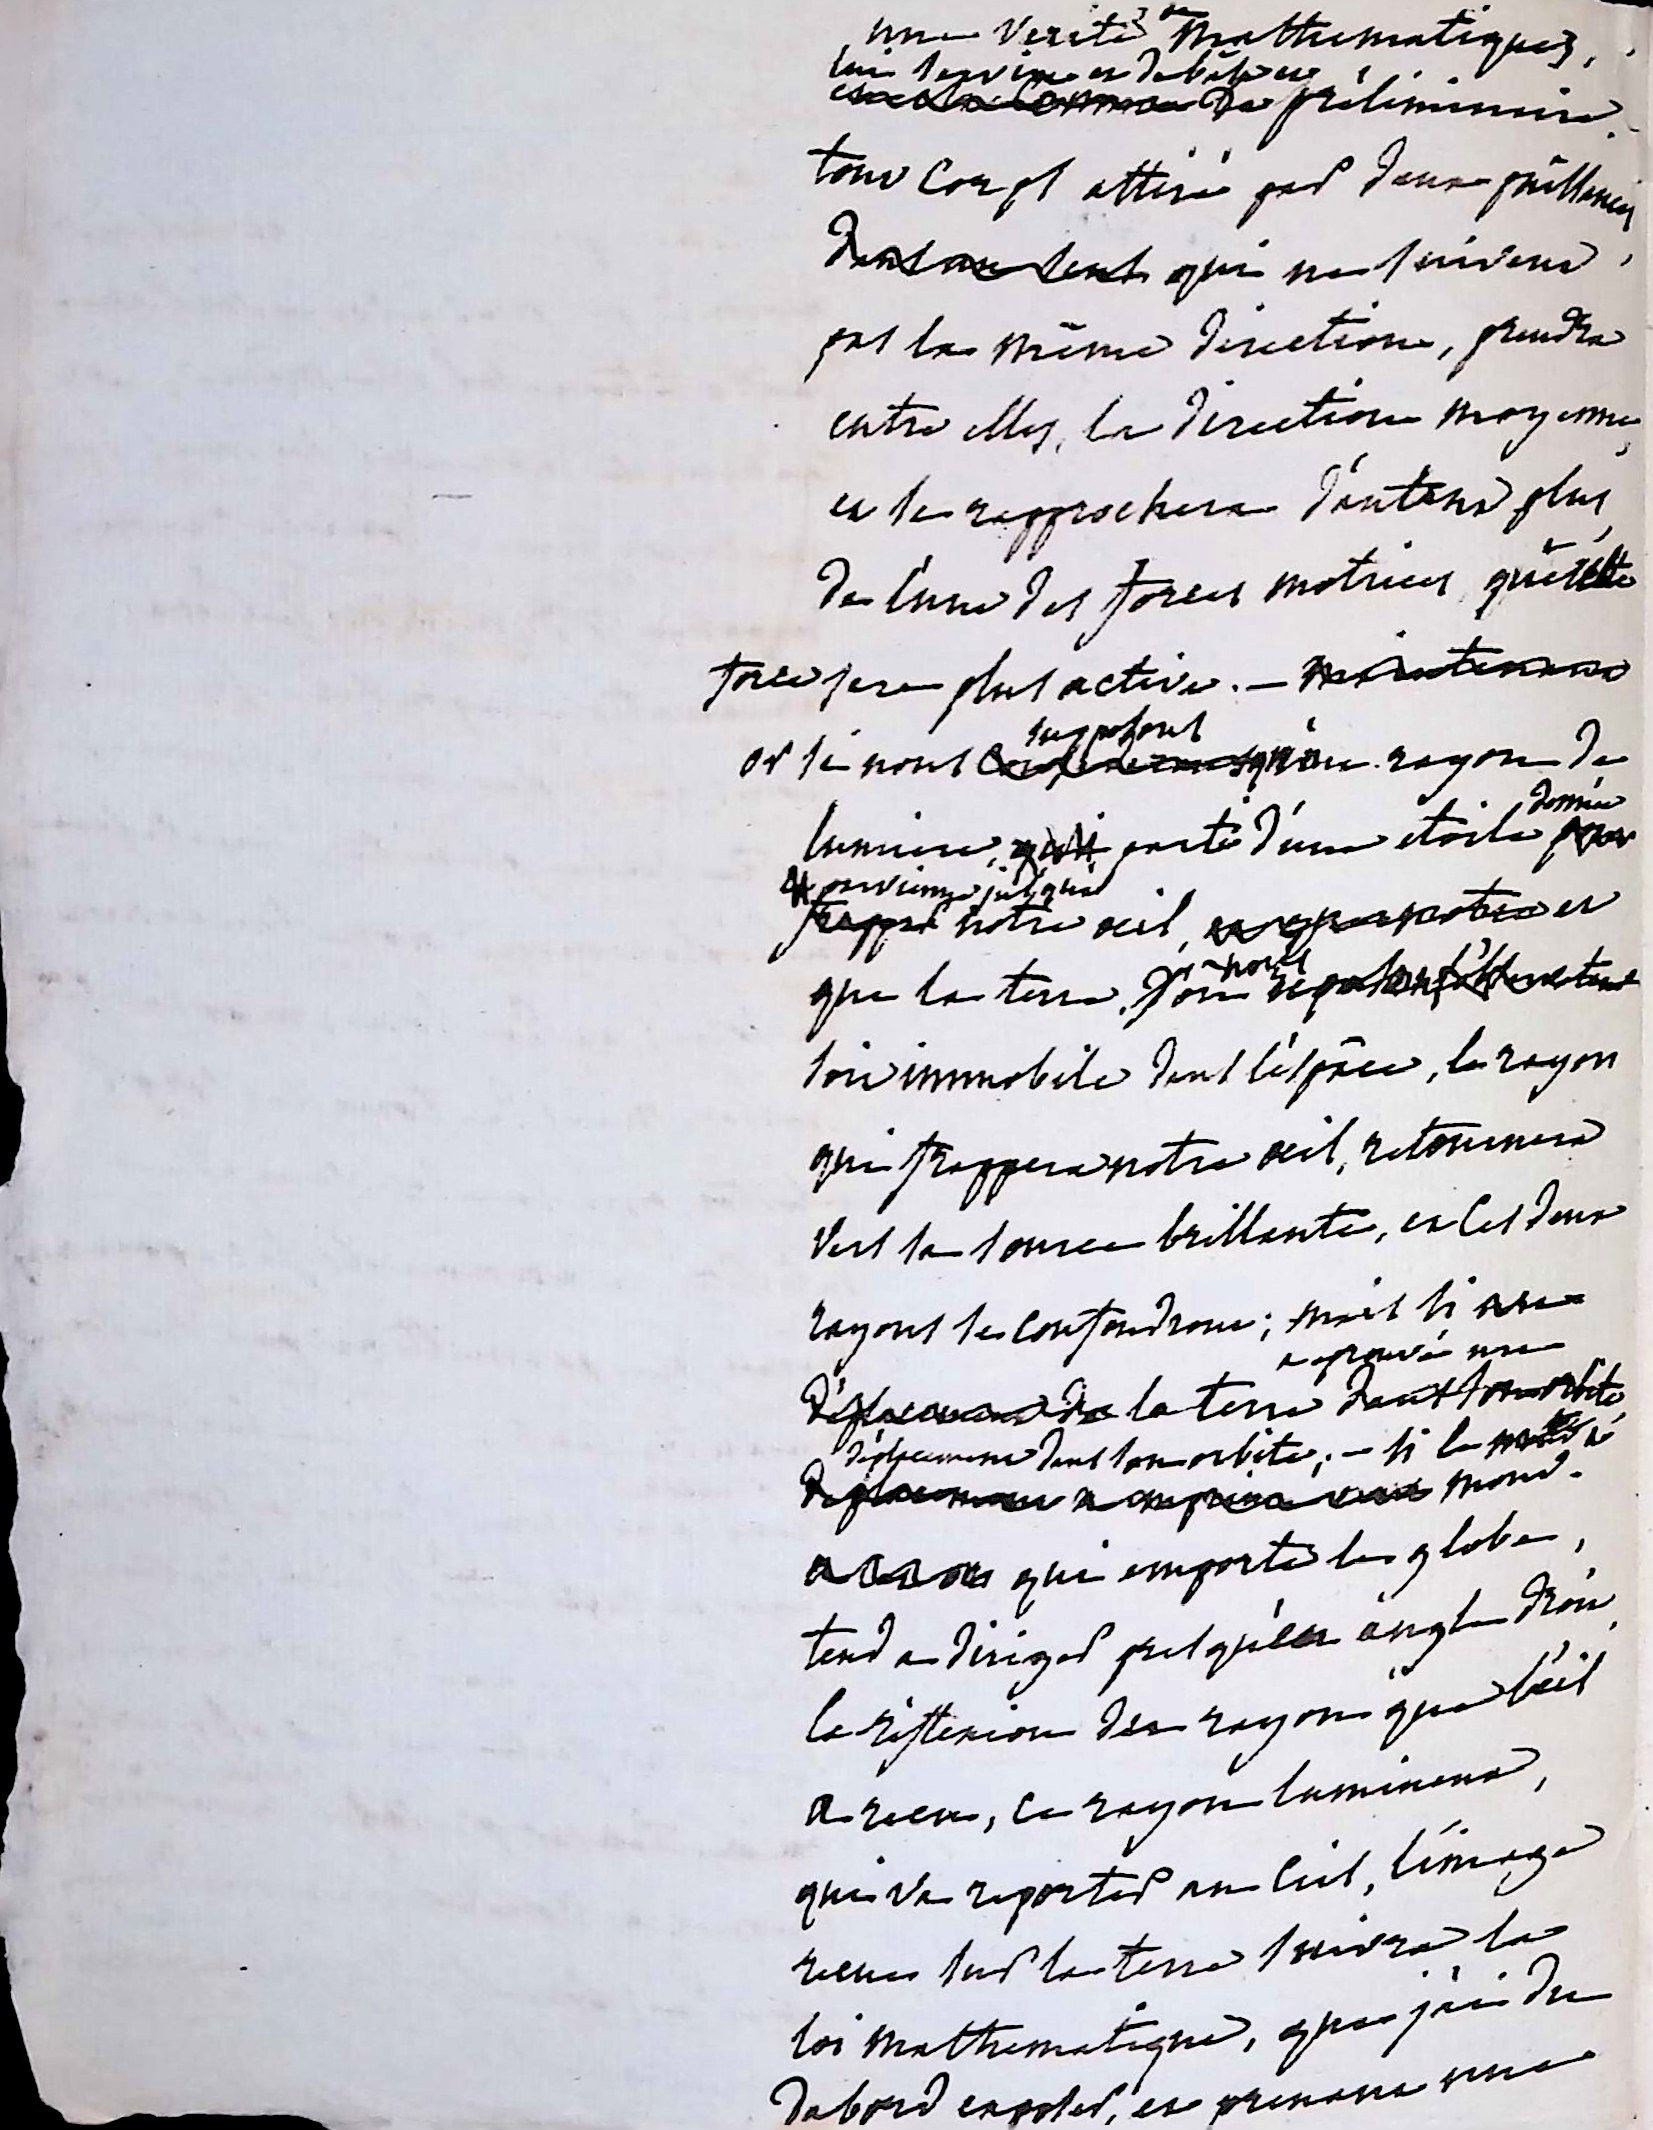 une verité mathematique,
lui servira de
de préliminaire.
tout Corps attiré par deux puissances
qui ne suivent
pas la même direction, prendra
entre elles, la direction moyenne,
et se rapprochera d'autant plus
de l'une des forces motrices, que cette
force sera plus active. — maintenant
or si nous supposons qu'un rayon de
lumiere, parti d'une etoile donnée
parvienne jusqu'à
notre oeil, et
que la terre, d'où nous
soit immobile dans l'éspace, le rayon
qui frappera notre oeil, retournera
vers sa source brillante, et ces deux
rayons se confondront; mais si
a eprouvé un
déplacement de la terre dans son orbite
déplacement dans son orbite; — si le
mouv-
qui emporte le globe,
tend a diriger presqu'en angle droit,
la réflexion du rayon que l'oeil
a recu, ce rayon lumineux,
qui va reporter au ciel, l'image
recue sur la terre suivra la
loi mathematique, que j'ai du
dabord exposer, et prenant une